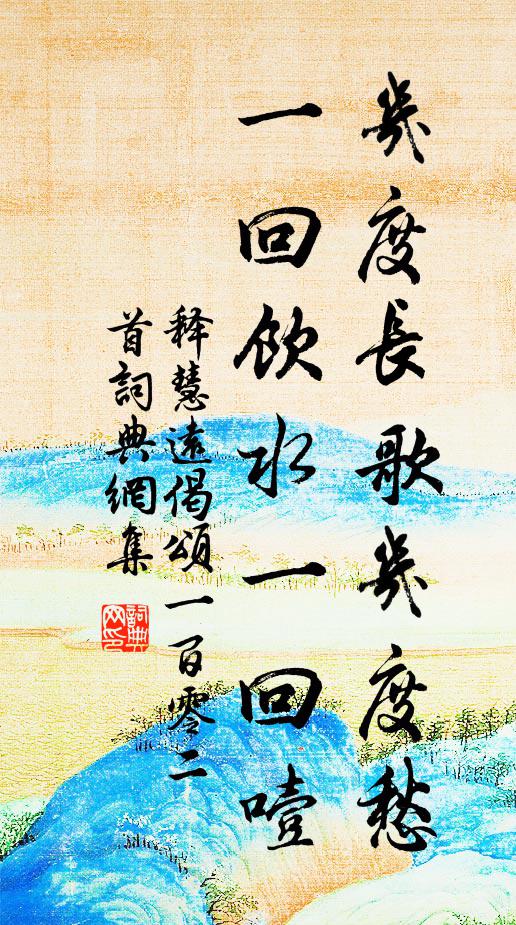 幾度長歌幾度愁
一回飲水一回噎
释慧遠偈頌一百零二
首詞典網集
詞典网印